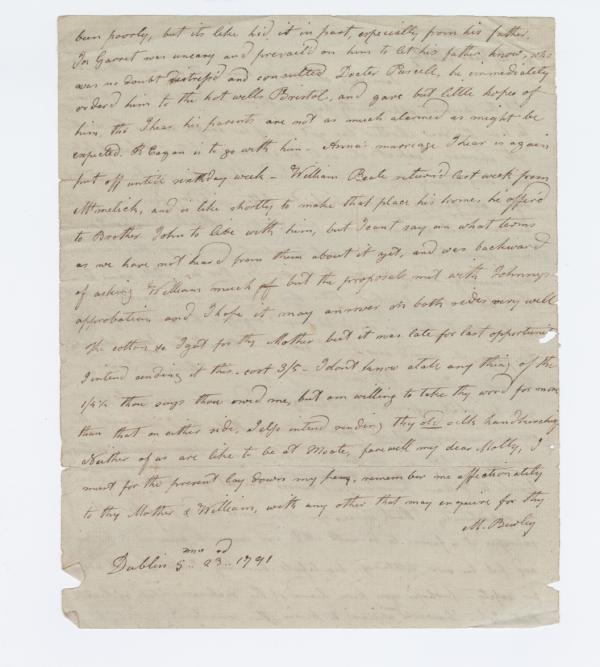 been poorly, but its like hid it in part, especially from his father,
Jos Garret was uneasy and prevail'd on him to let his father know, who
was no doubt distress'd and consulted Docter Purcell, he immediately
order'd him to the hot wells Bristol, and gave but little hopes of
him, tho I hear his parents are not as much alarmed as might be
expected. R Eagan is to go with him - Anna's marriage I hear is again
put off until sixthday week - William Beale return'd last week from
Mtmelick, and is like shortly to make that place his home, he offer'd
to Brother John to live with him, but I cant say on what terms
as we have not heard from them about it yet, and was backward
of asking William much of but the proposal met with Johnnys
approbation and I hope it may answer on both sides very well
The cotton &c I got for thy Mother but it was late for last opportunity
I intend sending it this - cost 3/5 - I dont know atall any thing of the
1/4½ thou says thou owed me, but am willing to take thy word for more
than that on either side, I also intend sending thy old silk handkerchef
Neither of us are like to be at Moate, farewell my dear Molly, I
must for the present lay down my pen, remember me affectionately
to thy Mother & William, with any other that may enquire for thy
M. Bewley
Dublin 5mo 23d 1791